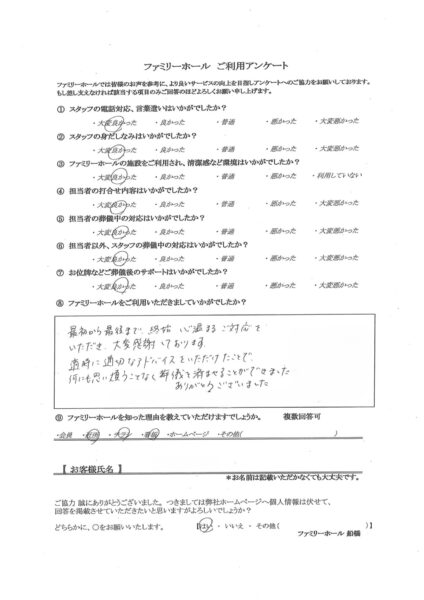 ファミリーホール　ご利用アンケート
ファミリーホールでは皆様のお声を参考に、より良いサービスの向上を目指しアンケートへのご協力をお願いしております。
もし差し支えなければ該当する項目のみご回答のほどよろしくお願い申し上げます。
① スタッフの電話対応、言葉遣いはいかがでしたか？
・大変良かった　・良かった　・普通　・悪かった　・大変悪かった
② スタッフの身だしなみはいかがでしたか？
・大変良かった　・良かった　・普通　・悪かった　・大変悪かった
③ ファミリーホールの施設をご利用され、清潔感など環境はいかがでしたか？
・大変良かった　・良かった　・普通　・悪かった　・利用していない
④ 担当者の打合せ内容はいかがでしたか？
・大変良かった　・良かった　・普通　・悪かった　・大変悪かった
⑤ 担当者の葬儀中の対応はいかがでしたか？
・大変良かった　・良かった　・普通　・悪かった　・大変悪かった
⑥ 担当者以外、スタッフの葬儀中の対応はいかがでしたか？
・大変良かった　・良かった　・普通　・悪かった　・大変悪かった
⑦ お位牌などご葬儀後のサポートはいかがでしたか？
・大変良かった　・良かった　・普通　・悪かった　・大変悪かった
⑧ ファミリーホールをご利用いただきましていかがでしたか？
最初から最後まで、終始 心温まるご対応を
いただき、大変感謝しております。
適時に適切なアドバイスをいただけたことで、
何にも思い煩うことなく葬儀を済ませることができました
ありがとうございました
⑨ ファミリーホールを知った理由を教えていただけますでしょうか。　複数回答可
・会員　・近所　・チラシ　・看板　・ホームページ　・その他(　)
【 お客様氏名 】
＊お名前は記載いただかなくても大丈夫です。
ご協力 誠にありがとうございました。つきましては弊社ホームページへ個人情報は伏せて、
回答を掲載させていただきたいと思いますがよろしいでしょうか？
どちらかに、○をお願いいたします。　【はい　・　いいえ　・　その他(　)】
ファミリーホール 船橋